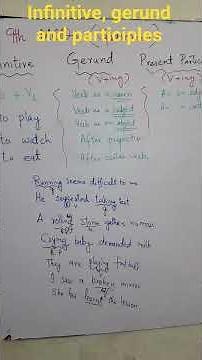 Infinitive, gerund
and participles
9th
Infinitive Gerund Present Partici
(V+ing) (V+ing)
+ V1 Verb as a noun As an adj
to play Verb as a subject As a
to watch Verb as an object
to eat After preposition
After certain verbs
Running seems difficult to me
He suggested taking test
A rolling stone gathers no moss
Crying baby demanded milk
They are playing football
I saw a broken mirror
She has learnt the lesson